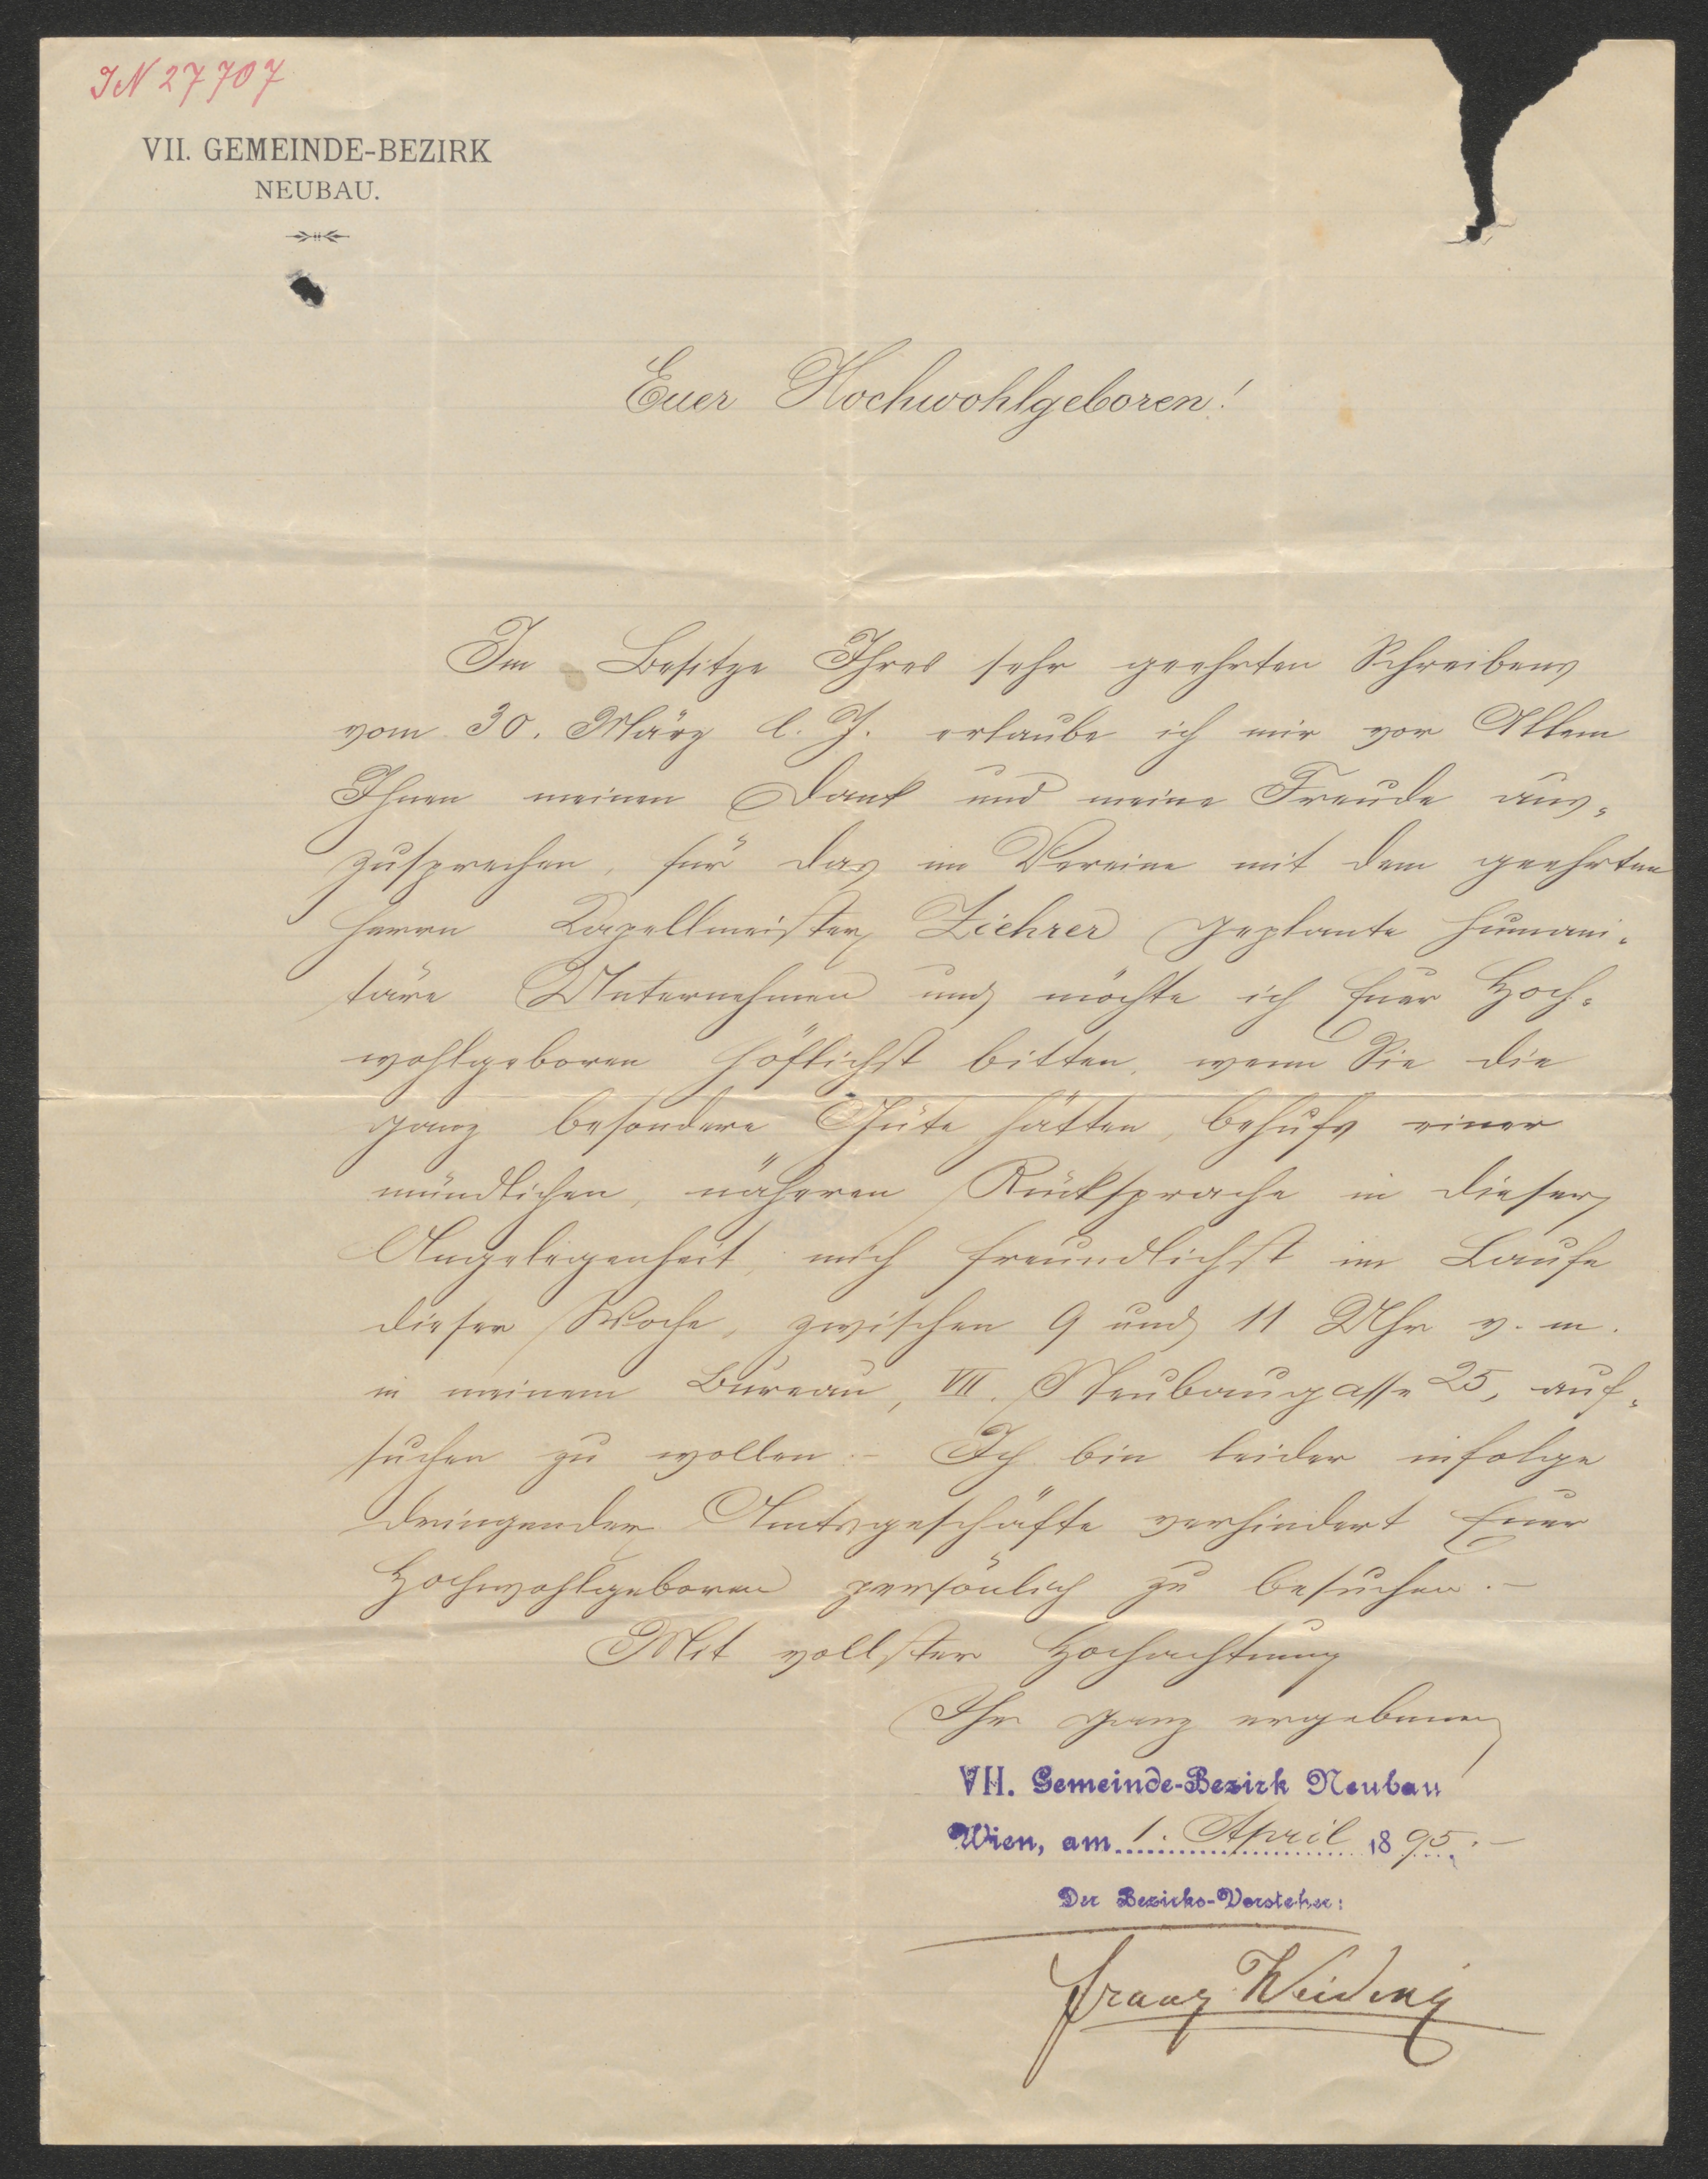 IN 27707
VII. GEMEINDE-BEZIRK
NEUBAU.
Euer Hochwohlgeboren!
Im Besitze Ihres sehr geehrten Schreibens
vom 30. März l. J. erlaube ich mir vor Allem
Ihnen meinen Dank und meine Freude aus-
zusprechen, für das im Vereine mit dem geehrten
Herrn Kapellmeister Ziehrer geplante humani-
täre Unternehmen und möchte ich Euer Hoch-
wohlgeboren höflichst bitten, wenn Sie die
ganz besondere Güte hätten, behufs einer
mündlichen, näheren Rücksprache in dieser
Angelegenheit, mich freundlichst im Laufe
dieser Woche, zwischen 9 und 11 Uhr v. m.
in meinem Bureau, VII. Neubaugasse 25, auf-
suchen zu wollen. – Ich bin leider infolge
dringender Amtsgeschäfte verhindert Euer
Hochwohlgeboren persönlich zu besuchen. –
Mit vollster Hochachtung
Ihr ganz ergebener
VII. Gemeinde-Bezirk Neubau
Wien, am 1. April 1895. –
Der Bezirks-Vorsteher:
Franz Weiding